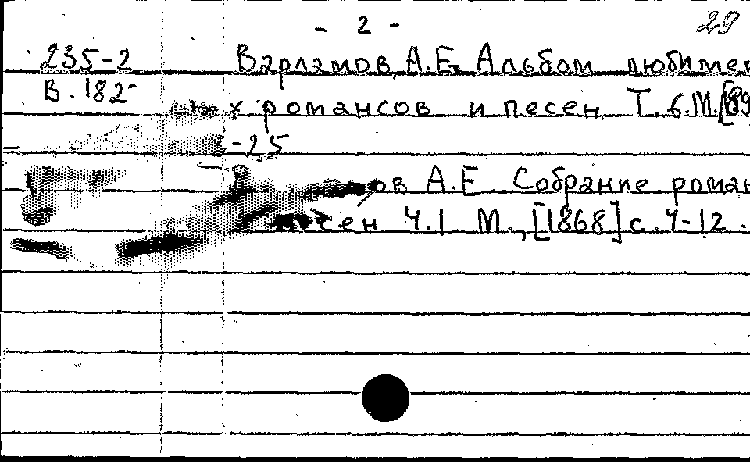 - 2 -
29
235-2 Варламов, А.Е. Альбом любимей
В.182 х романсов и песен Т.6.М.[189
-25
ов А.Е Собрание роман
песен Ч.1 М., [1868] с.4-12.